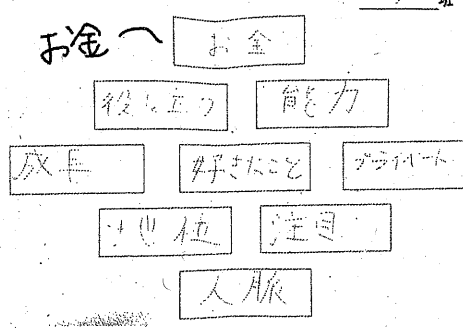 班
お金へ
お金
役に立つ 能力
成長 好きなこと プライベート
地位 注目
人脈